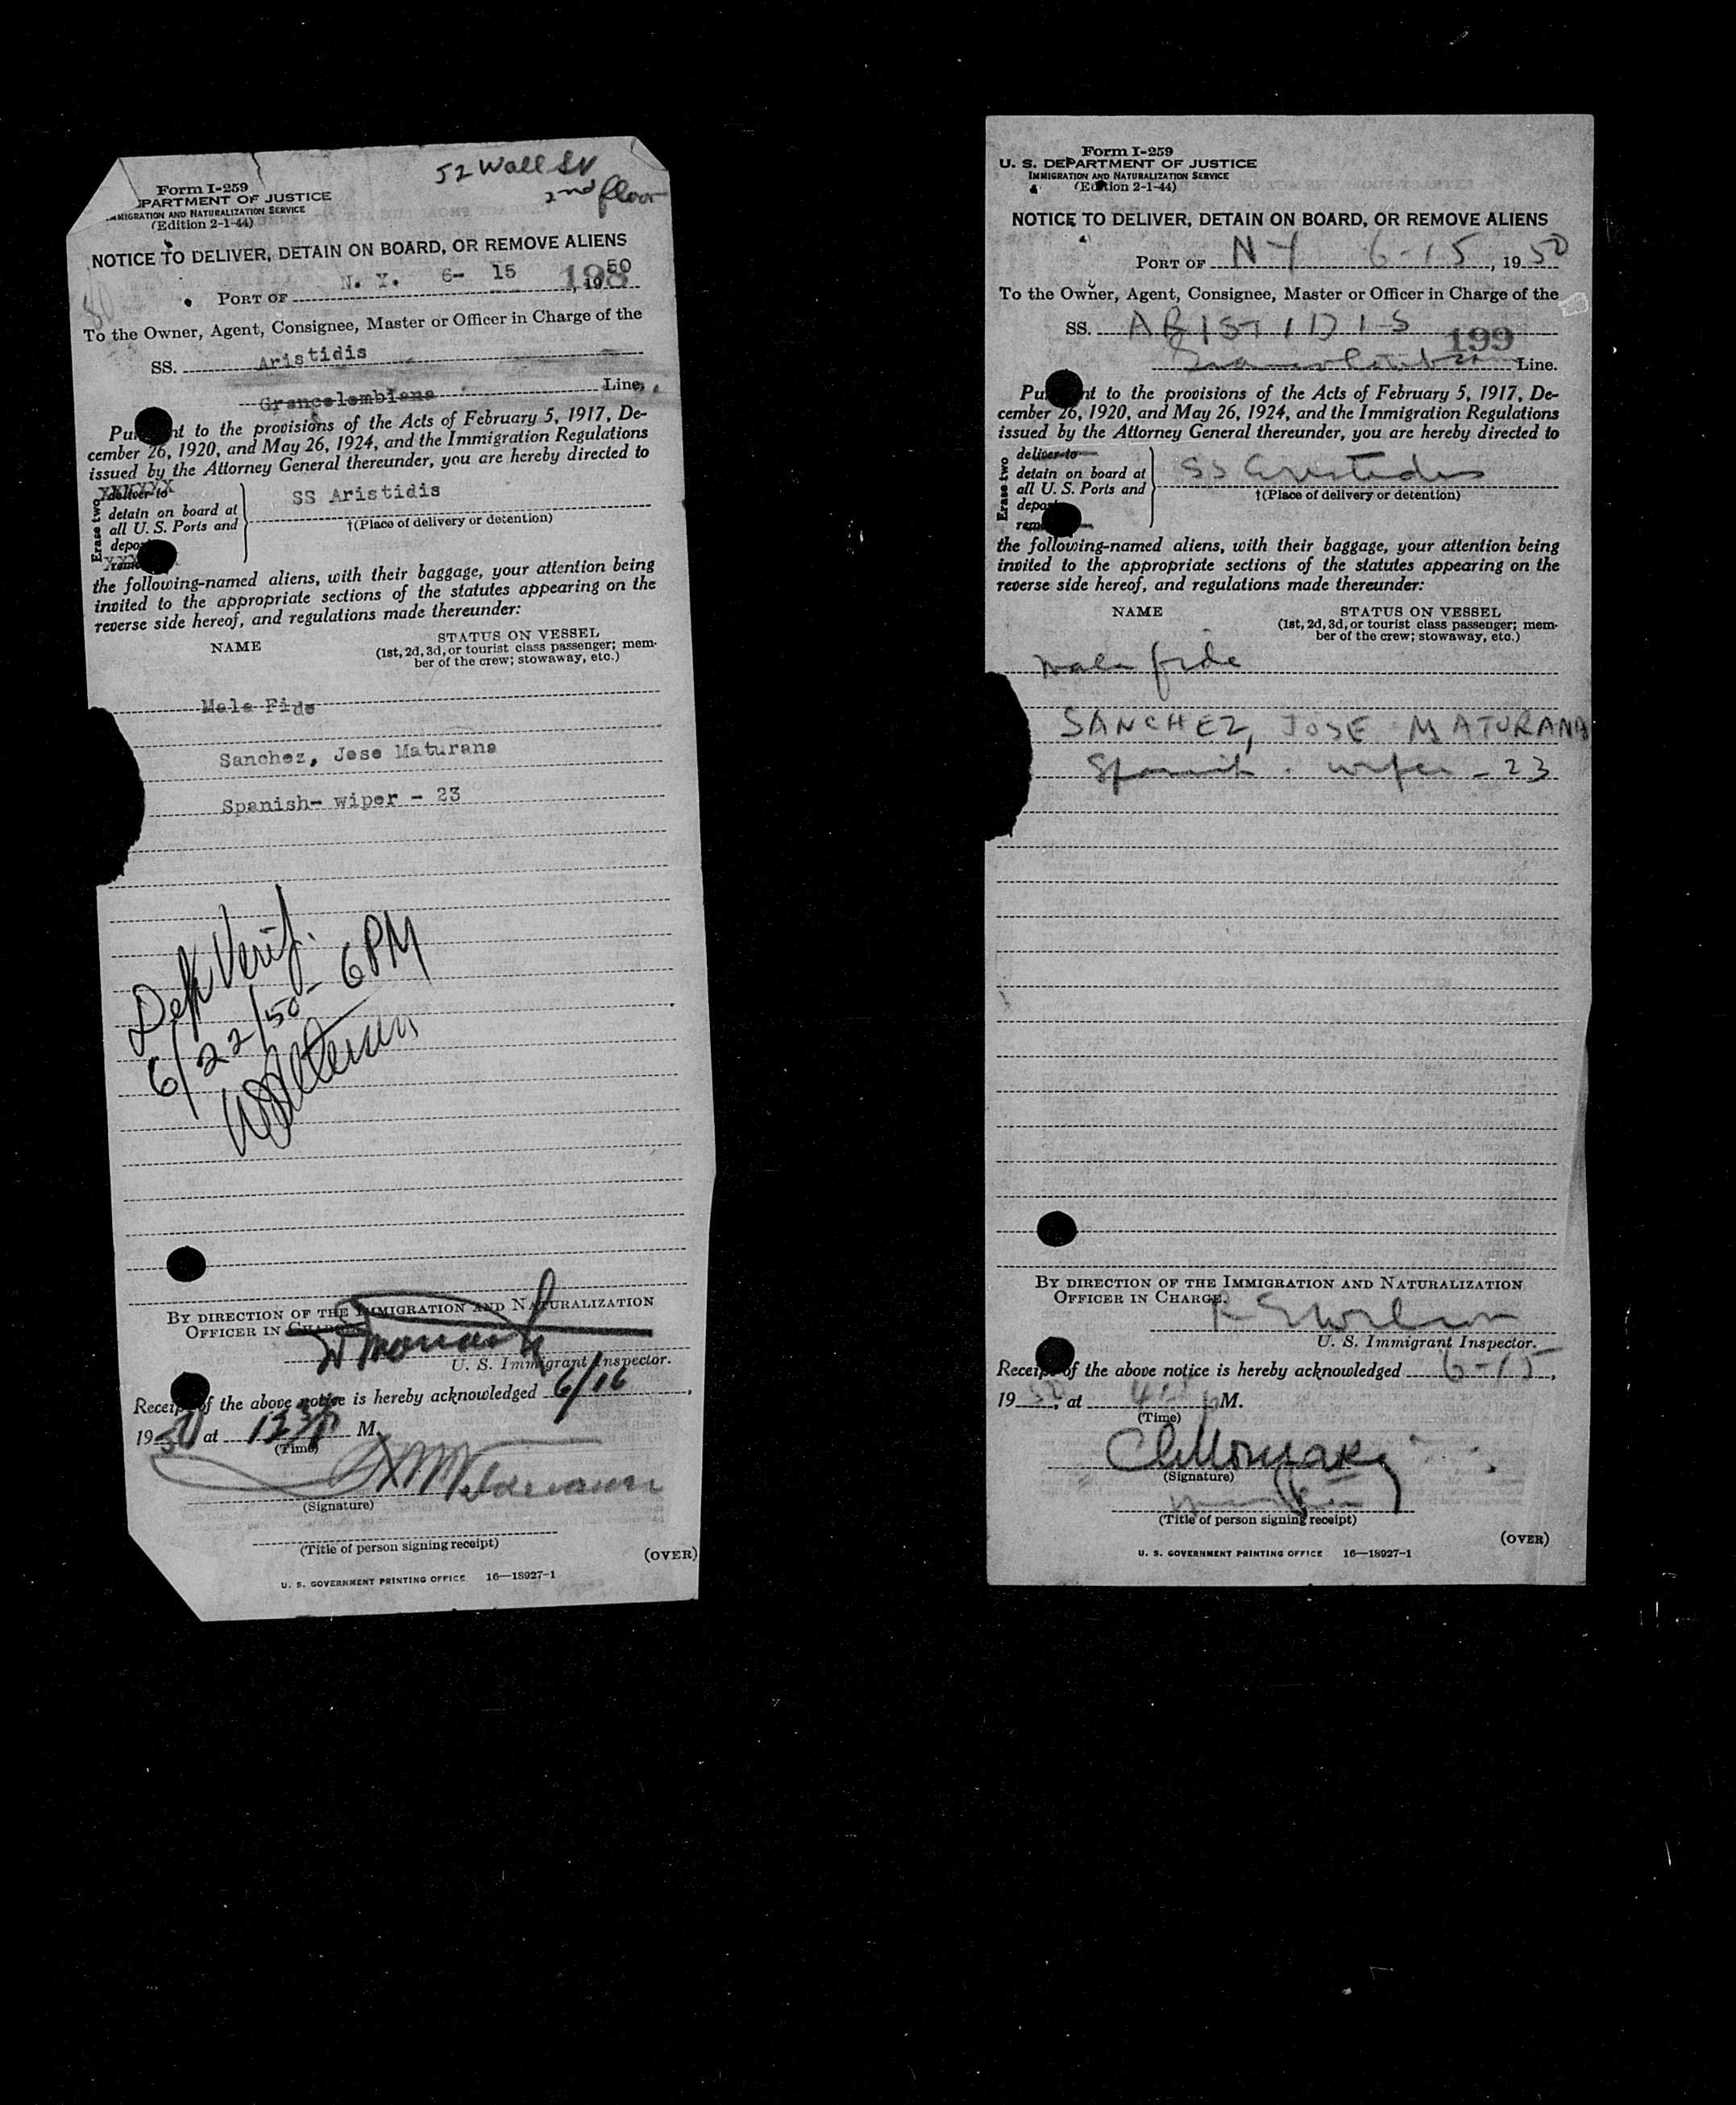 52 Wall St
2nd floor
Form I-259
PARTMENT OF JUSTICE
MIGRATION AND NATURALIZATION SERVICE
(Edition 2-1-44)
NOTICE TO DELIVER, DETAIN ON BOARD, OR REMOVE ALIENS
198
PORT OF N. Y. 6- 15, 1950
To the Owner, Agent, Consignee, Master or Officer in Charge of the
SS. Aristidis
Grancolombiana Line,
Pu nt to the provisions of the Acts of February 5, 1917, De-
cember 26, 1920, and May 26, 1924, and the Immigration Regulations
issued by the Attorney General thereunder, you are hereby directed to
Erase two
deliver to
detain on board at
all U. S. Ports and
depo
remo
SS Aristidis
†(Place of delivery or detention)
the following-named aliens, with their baggage, your attention being
invited to the appropriate sections of the statutes appearing on the
reverse side hereof, and regulations made thereunder:
NAME
STATUS ON VESSEL
(1st, 2d, 3d, or tourist class passenger; mem-
ber of the crew; stowaway, etc.)
Mala Fide
Sanchez, Jose Maturana
Spanish- wiper - 23
Dep Verif.
6/22/50- 6 PM
BY DIRECTION OF THE IMMIGRATION AND NATURALIZATION
OFFICER IN CHARGE
U. S. Immigrant Inspector.
Receip of the above notice is hereby acknowledged 6/16,
1950 at 1230 P M.
(Time)
(Signature)
(Title of person signing receipt)
(OVER)
U. S. GOVERNMENT PRINTING OFFICE 16—18927-1
Form I-259
U. S. DEPARTMENT OF JUSTICE
IMMIGRATION AND NATURALIZATION SERVICE
(Edition 2-1-44)
NOTICE TO DELIVER, DETAIN ON BOARD, OR REMOVE ALIENS
PORT OF N Y 6-15, 1950
To the Owner, Agent, Consignee, Master or Officer in Charge of the
SS. ARISTIDIS
199
Line.
Pu nt to the provisions of the Acts of February 5, 1917, De-
cember 26, 1920, and May 26, 1924, and the Immigration Regulations
issued by the Attorney General thereunder, you are hereby directed to
Erase two
deliver to
detain on board at
all U. S. Ports and
depo
rem
SS Aristidis
†(Place of delivery or detention)
the following-named aliens, with their baggage, your attention being
invited to the appropriate sections of the statutes appearing on the
reverse side hereof, and regulations made thereunder:
NAME
STATUS ON VESSEL
(1st, 2d, 3d, or tourist class passenger; mem-
ber of the crew; stowaway, etc.)
mala fide
SANCHEZ, JOSE MATURANA
Spanish - wiper - 23
BY DIRECTION OF THE IMMIGRATION AND NATURALIZATION
OFFICER IN CHARGE.
U. S. Immigrant Inspector.
Receip of the above notice is hereby acknowledged 6-15,
1950, at p M.
(Time)
(Signature)
(Title of person signing receipt)
(OVER)
U. S. GOVERNMENT PRINTING OFFICE 16—18927-1